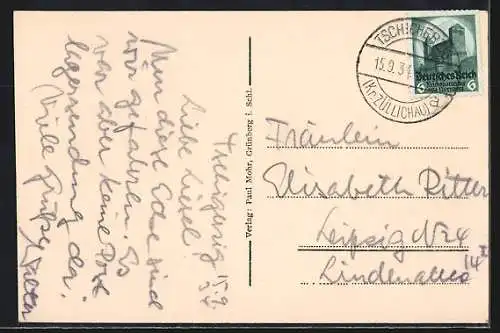 Tschicherzig 15.9.
34
Liebe Liesel!
Nun diese Ecke sind
wir gefahren. Es
war aber keine Post
lagersendung da.
Viele Grüße
Walter
Verlag: Paul Mohr, Grünberg i. Schl.
TSCHICHER
15.9.34
(Kr. ZÜLLICHAU)
Deutsches Reich
6 6
Fräulein
Elisabeth Ritter
Leipzig
Lindenau
14